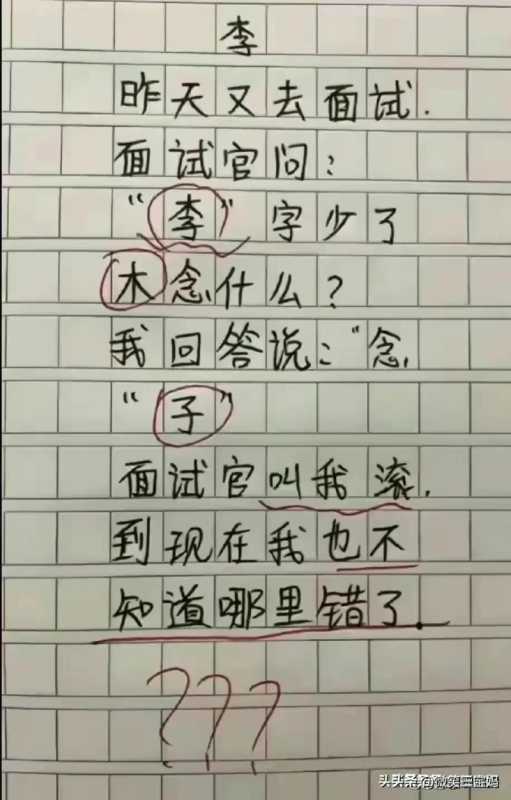 李
昨天又去面试.
面试官问：
“李”字少了
木念什么？
我回答说：“念
“子”
面试官叫我滚.
到现在我也不
知道哪里错了.
???